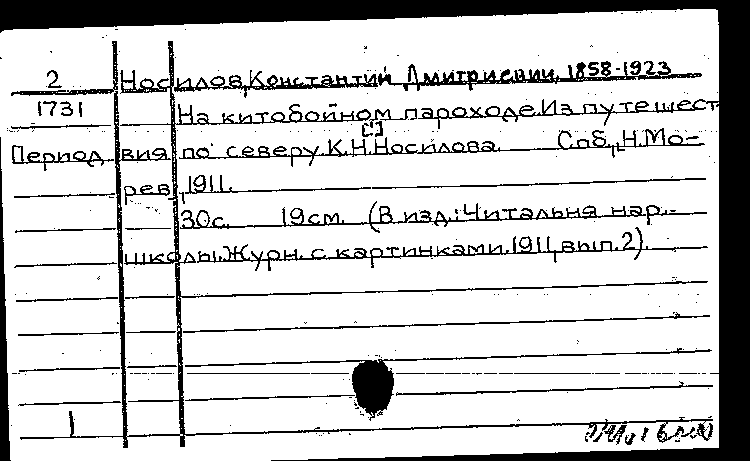 2 Носилов, Константин Дмитриевич, 1858-1923
1731 На китобойном пароходе. Из путешест
Период вия по северу. К.Н.[!] Носилова. Спб., Н. Мо-
рев, 1911.
30с. 19см. (В изд.: Читальня нар.
школы. Журн. с картинками. 1911, вып. 2).
1